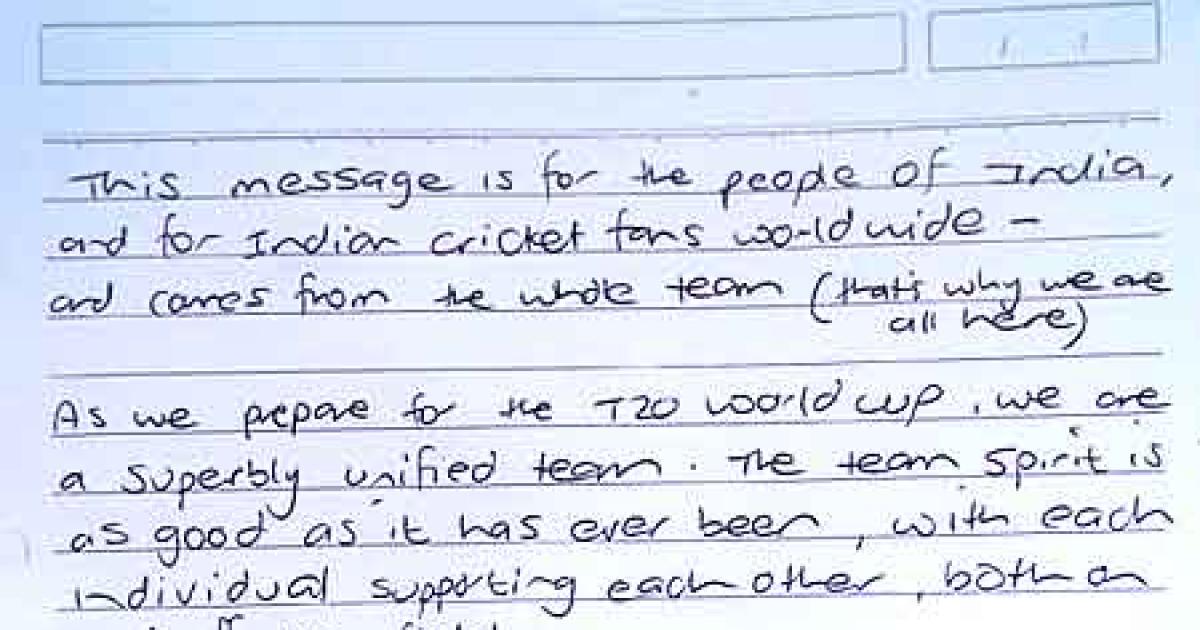 This message is for the people of India,
and for Indian cricket fans worldwide -
and comes from the whole team (that's why we are
all here)
As we prepare for the T20 world cup, we are
a superbly unified team. The team spirit is
as good as it has ever been, with each
individual supporting each other, both on